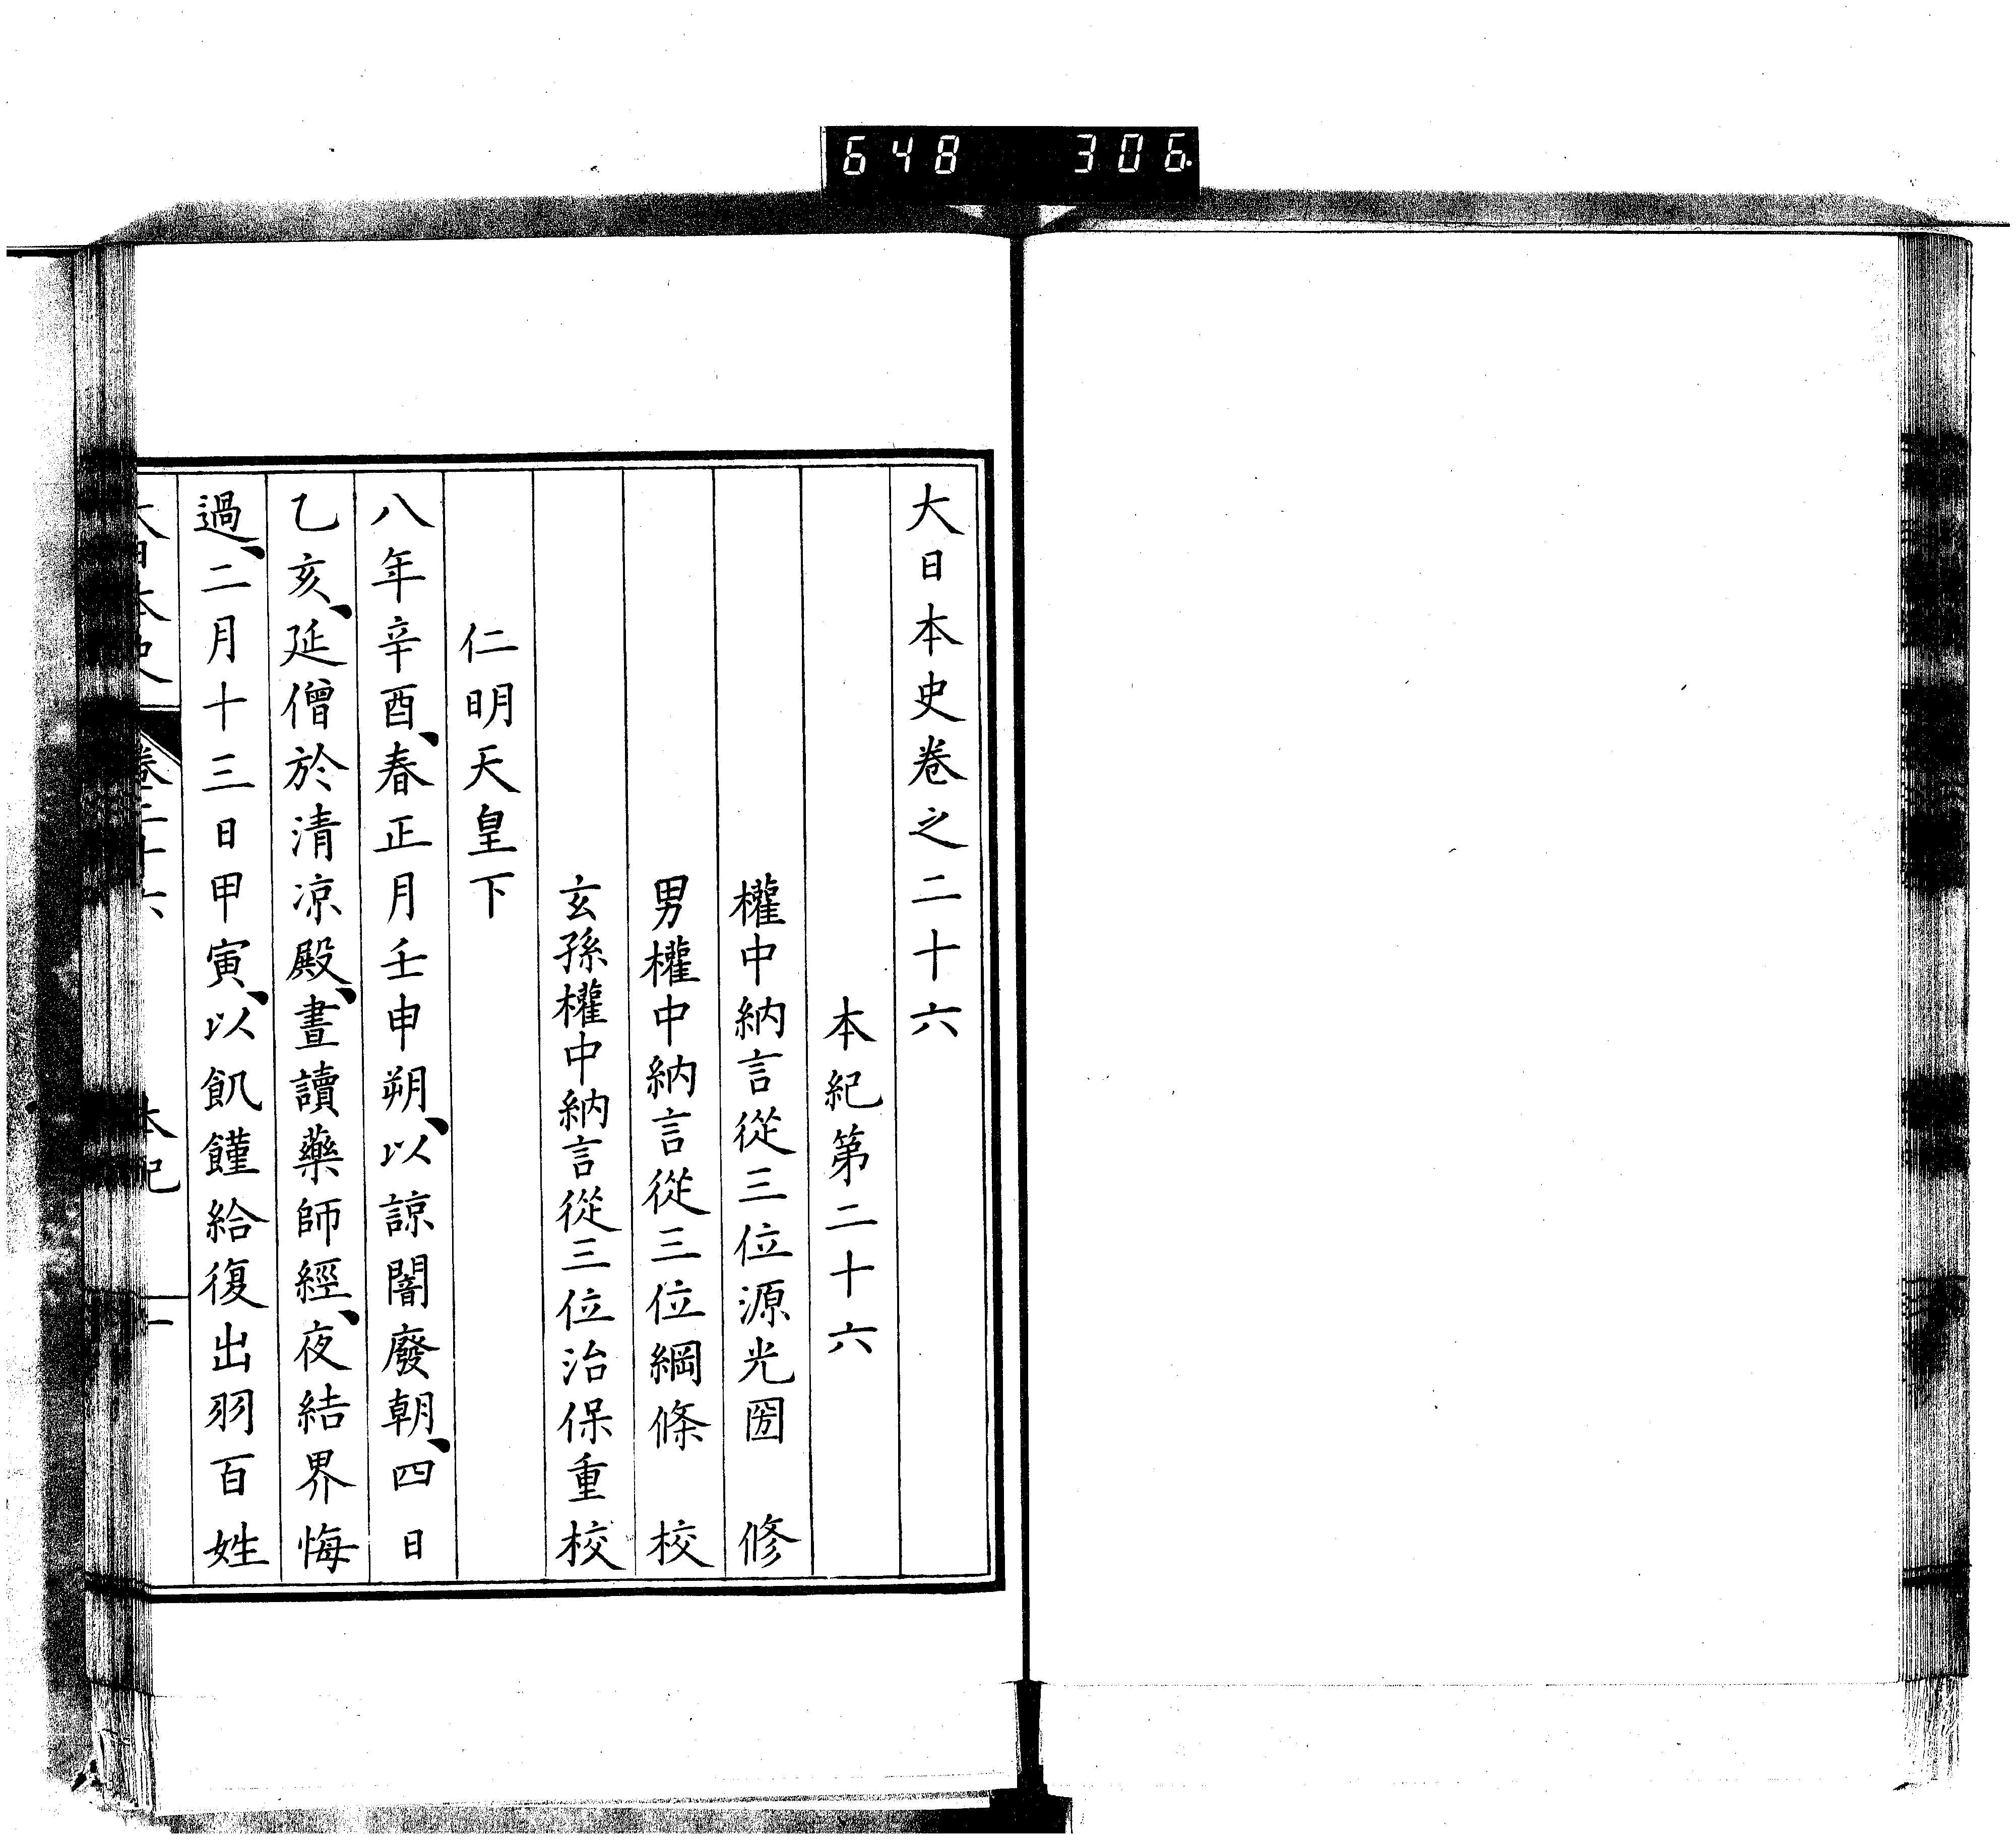 648 306
大日本史卷之二十六
本紀第二十六
權中納言從三位源光圀 修
男權中納言從三位綱條 校
玄孫權中納言從三位治保重校
仁明天皇下
八年辛酉、春正月壬申朔、以諒闇廢朝、四日
乙亥、延僧於清凉殿、晝讀藥師經、夜結界悔
過、二月十三日甲寅、以飢饉給復出羽百姓
大日本史 卷二十六 本紀 一